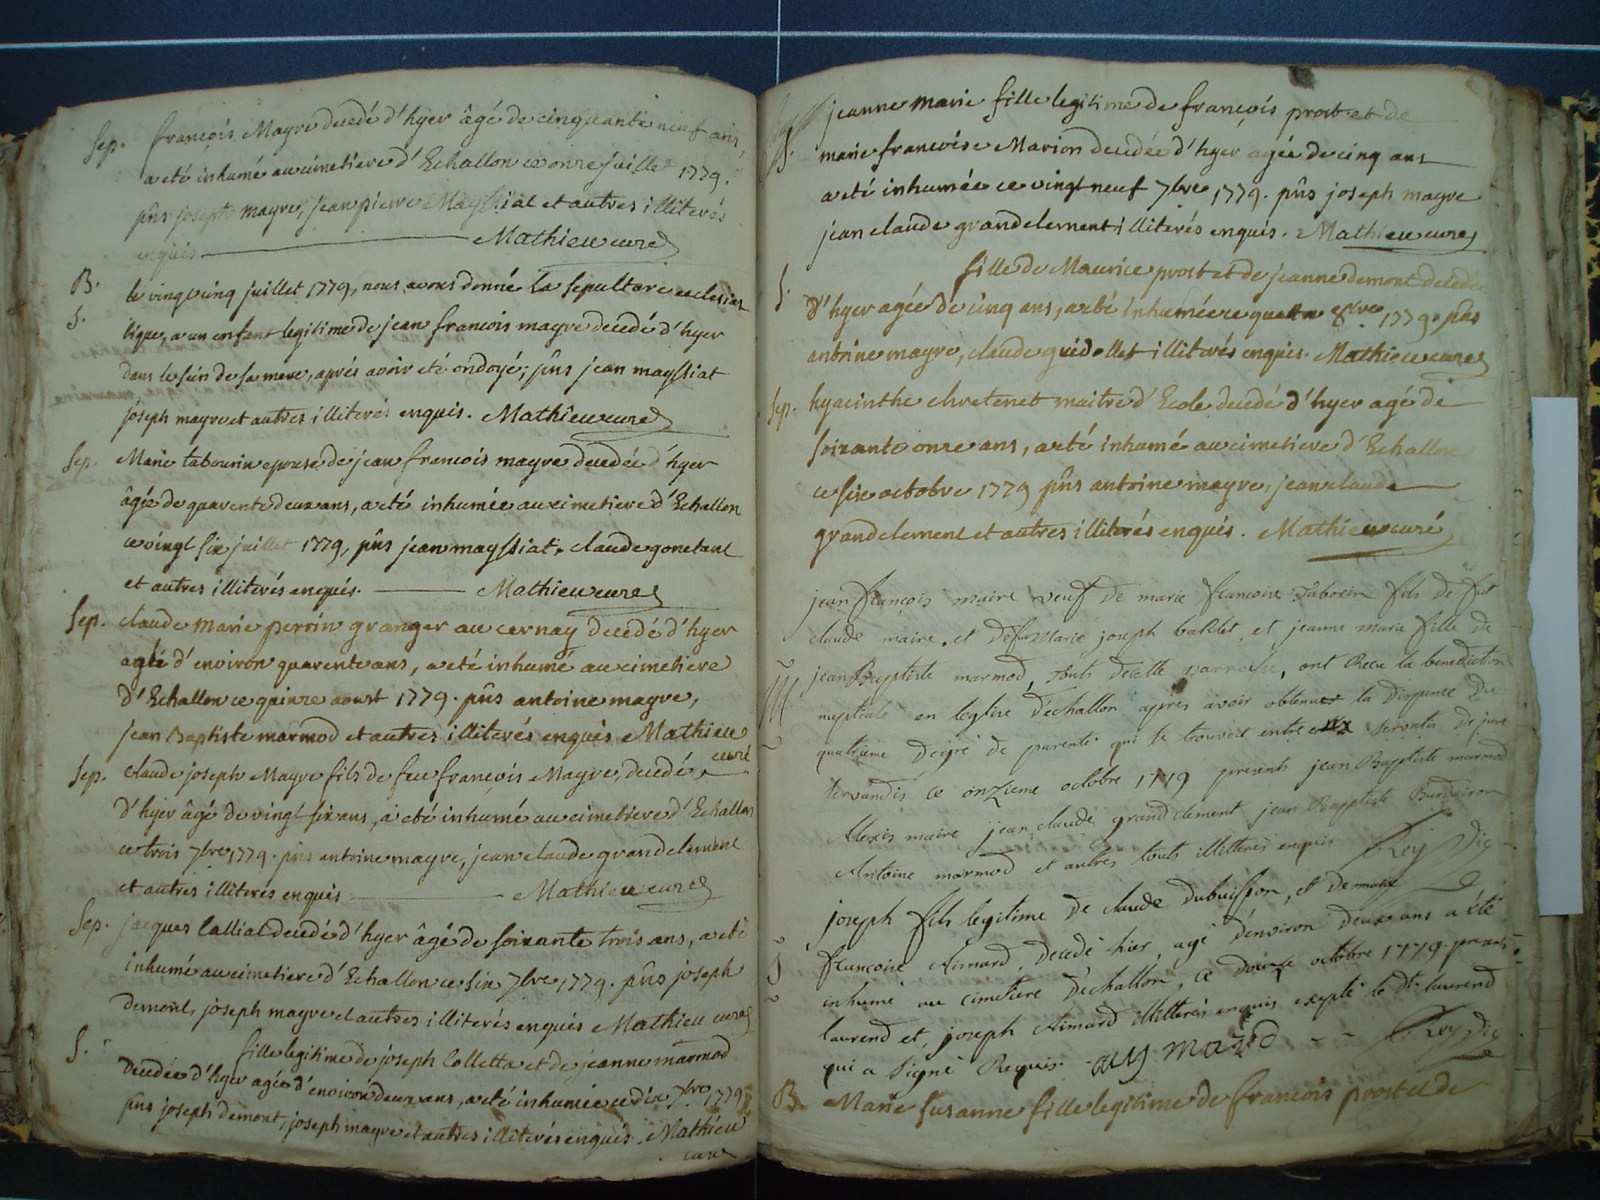 Sep. françois Mayre decedé d'hyer âgé de cinquante neuf ans,
a eté inhumé au cimetiere d'Echallon ce onze juillet 1779.
pñs joseph mayre, jean pierre Mayssiat et autres illiterés
enquis Mathieu curé
B. le vingt cinq juillet 1779, nous avons donné la sepulture ecclesias
S. tique, a un enfant legitime de jean françois mayre decedé d'hyer
dans le sein de sa mere, aprés avoir eté ondoyé; pñs jean mayssiat
joseph mayre et autres illiterés enquis. Mathieu curé
Sep. Marie tabourin epouse de jean françois mayre decedée d'hyer
âgée de quarente deux ans, a eté inhumée au cimetiere d'Echallon
ce vingt six juillet 1779, pñs jean mayssiat, claude gonetant
et autres illiterés enquis. Mathieu curé
Sep. claude Marie perrin granger au cernay decedé d'hyer
agé d'environ quarente ans, a eté inhumé au cimetiere
d'Echallon ce quinze aoust 1779. pñs antoine mayre,
jean Baptiste marmod et autres illiterés enquis Mathieu
curé
Sep. claude joseph Mayre fils de feu françois Mayre, decedé
d'hyer âgé de vingt six ans, a eté inhumé au cimetiere d'Echallon
ce trois 7bre 1779. pñs antoine mayre, jean claude grandclement
et autres illiterés enquis Mathieu curé
Sep. jacques Lalliat decedé d'hyer âgé de soixante trois ans, a eté
inhumé au cimetiere d'Echallon ce six 7bre 1779. pñs joseph
demont, joseph mayre et autres illiterés enquis Mathieu curé
S. fille legitime de joseph Colletta et de jeanne marmod
decedée d'hyer agée d'environ deux ans, a eté inhumée ce dix 7bre 1779
pñs joseph demont, joseph mayre et autres illiterés enquis. Mathieu
curé
S. jeanne marie fille legitime de françois prost et de
marie françoise Marion decedée d'hyer agée de cinq ans
a eté inhumée ce vingt neuf 7bre 1779. pñs joseph mayre
jean claude grandclement illiterés enquis. Mathieu curé
S. fille de Maurice prost et de jeanne demont decedée
d'hyer agée de cinq ans, a eté inhumée ce quatre 8bre 1779. pñs
antoine mayre, claude grédollet illiterés enquis. Mathieu curé
Sep. hyacinthe chretenet maitre d'Ecole decedé d'hyer agé de
soixante onze ans, a eté inhumé au cimetiere d'Echallon
ce six octobre 1779 pñs antoine mayre, jean claude
grandclement et autres illiterés enquis. Mathieu curé
jean françois maire veuf de marie francoise Taborin fils de feu
claude maire, et de marie joseph ballet, et jeanne marie fille de
jean Baptiste marmod, touts de cette parroisse, ont Recu la benediction
nuptiale en leglise d'echallon apres avoir obtenu la dispence du
quatrieme degré de parenté qui se trouvoit entre eux servatis de jure
servandis ce onzieme octobre 1779 presents jean Baptiste marmod
Alexis maire jean claude grandclement jean Baptiste
Antoine marmod et autres touts illitterés enquis Rey Dig
joseph fils legitime de claude dubuisson, et de marie
francoise Aimard, decedé hier, agé d'environ deux ans a été
inhumé au cimetiere d'echallon, ce douze octobre 1779. presents
laurend et joseph Aimard illitterés enquis exepté le dt. laurend
qui a signé Requis. aymard Rey Dig
B. Marie susanne fille legitime de françois prost et de